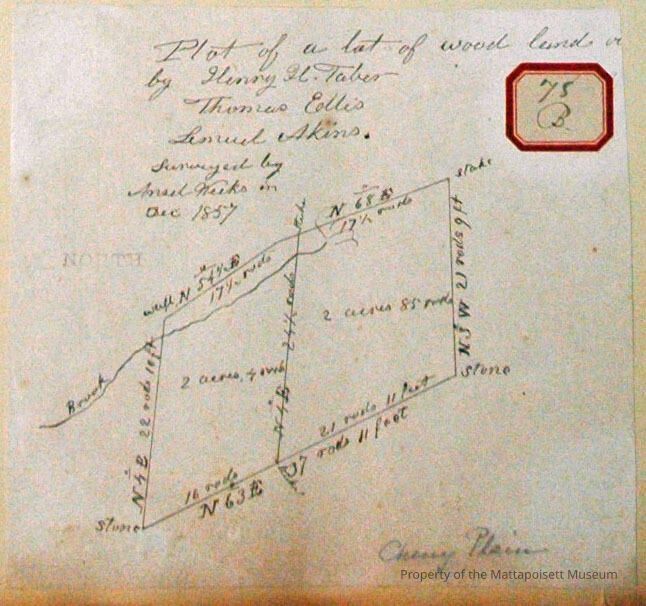 Plot of a lot of wood land
by Henry H. Taber
Thomas Ellis
Lemuel Akins.
Surveyed by
Ansel Weeks in
Dec 1857
75
B
stake
N 68 E
17½ rods
N 54½ E
17½ rods
wall
Brook
2 acres 85 rods
2 acres, 4 rods
24½ rods
N 4 E
N 3 W 21 rods 9 ft
N 4 E 22 rods 10 ft
stone
21 rods 11 feet
37 rods 11 feet
16 rods
N 63 E
stone
Cherry Plain
Property of the Mattapoisett Museum